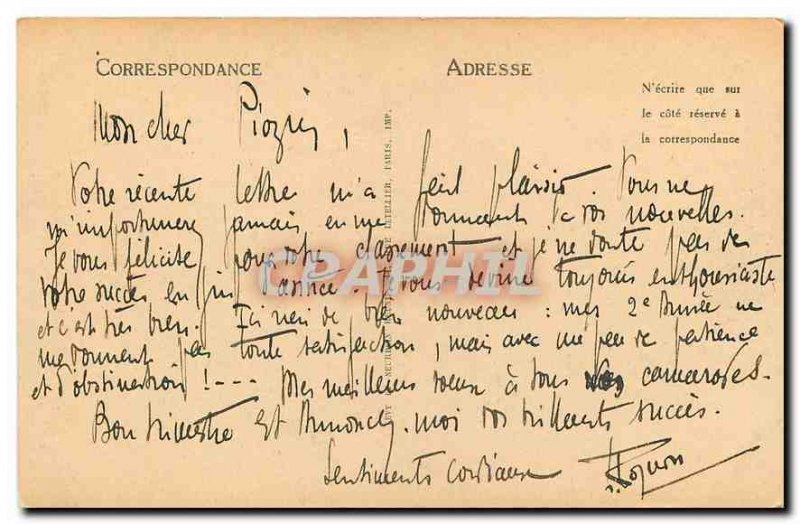 CORRESPONDANCE ADRESSE
N'écrire que sur
le côté réservé à
la correspondance
Mon cher
Votre récente lettre m'a fait plaisir. Vous ne
m'importunerez jamais en me donnant de vos nouvelles.
Je vous félicite pour votre classement et je ne doute pas de
votre succès en fin d'année. Je vous devine toujours enthousiaste
et c'est très bien. Ici rien de bien nouveau : mes 2e Année ne
me donnent pas toute satisfaction, mais avec un peu de patience
et d'obstination ! --- Mes meilleurs vœux à tous vos camarades.
Bon trimestre et Annoncez-moi vos brillants succès.
Sentiments cordiaux
CPAPHIL
LETELLIER, PARIS, IMP.